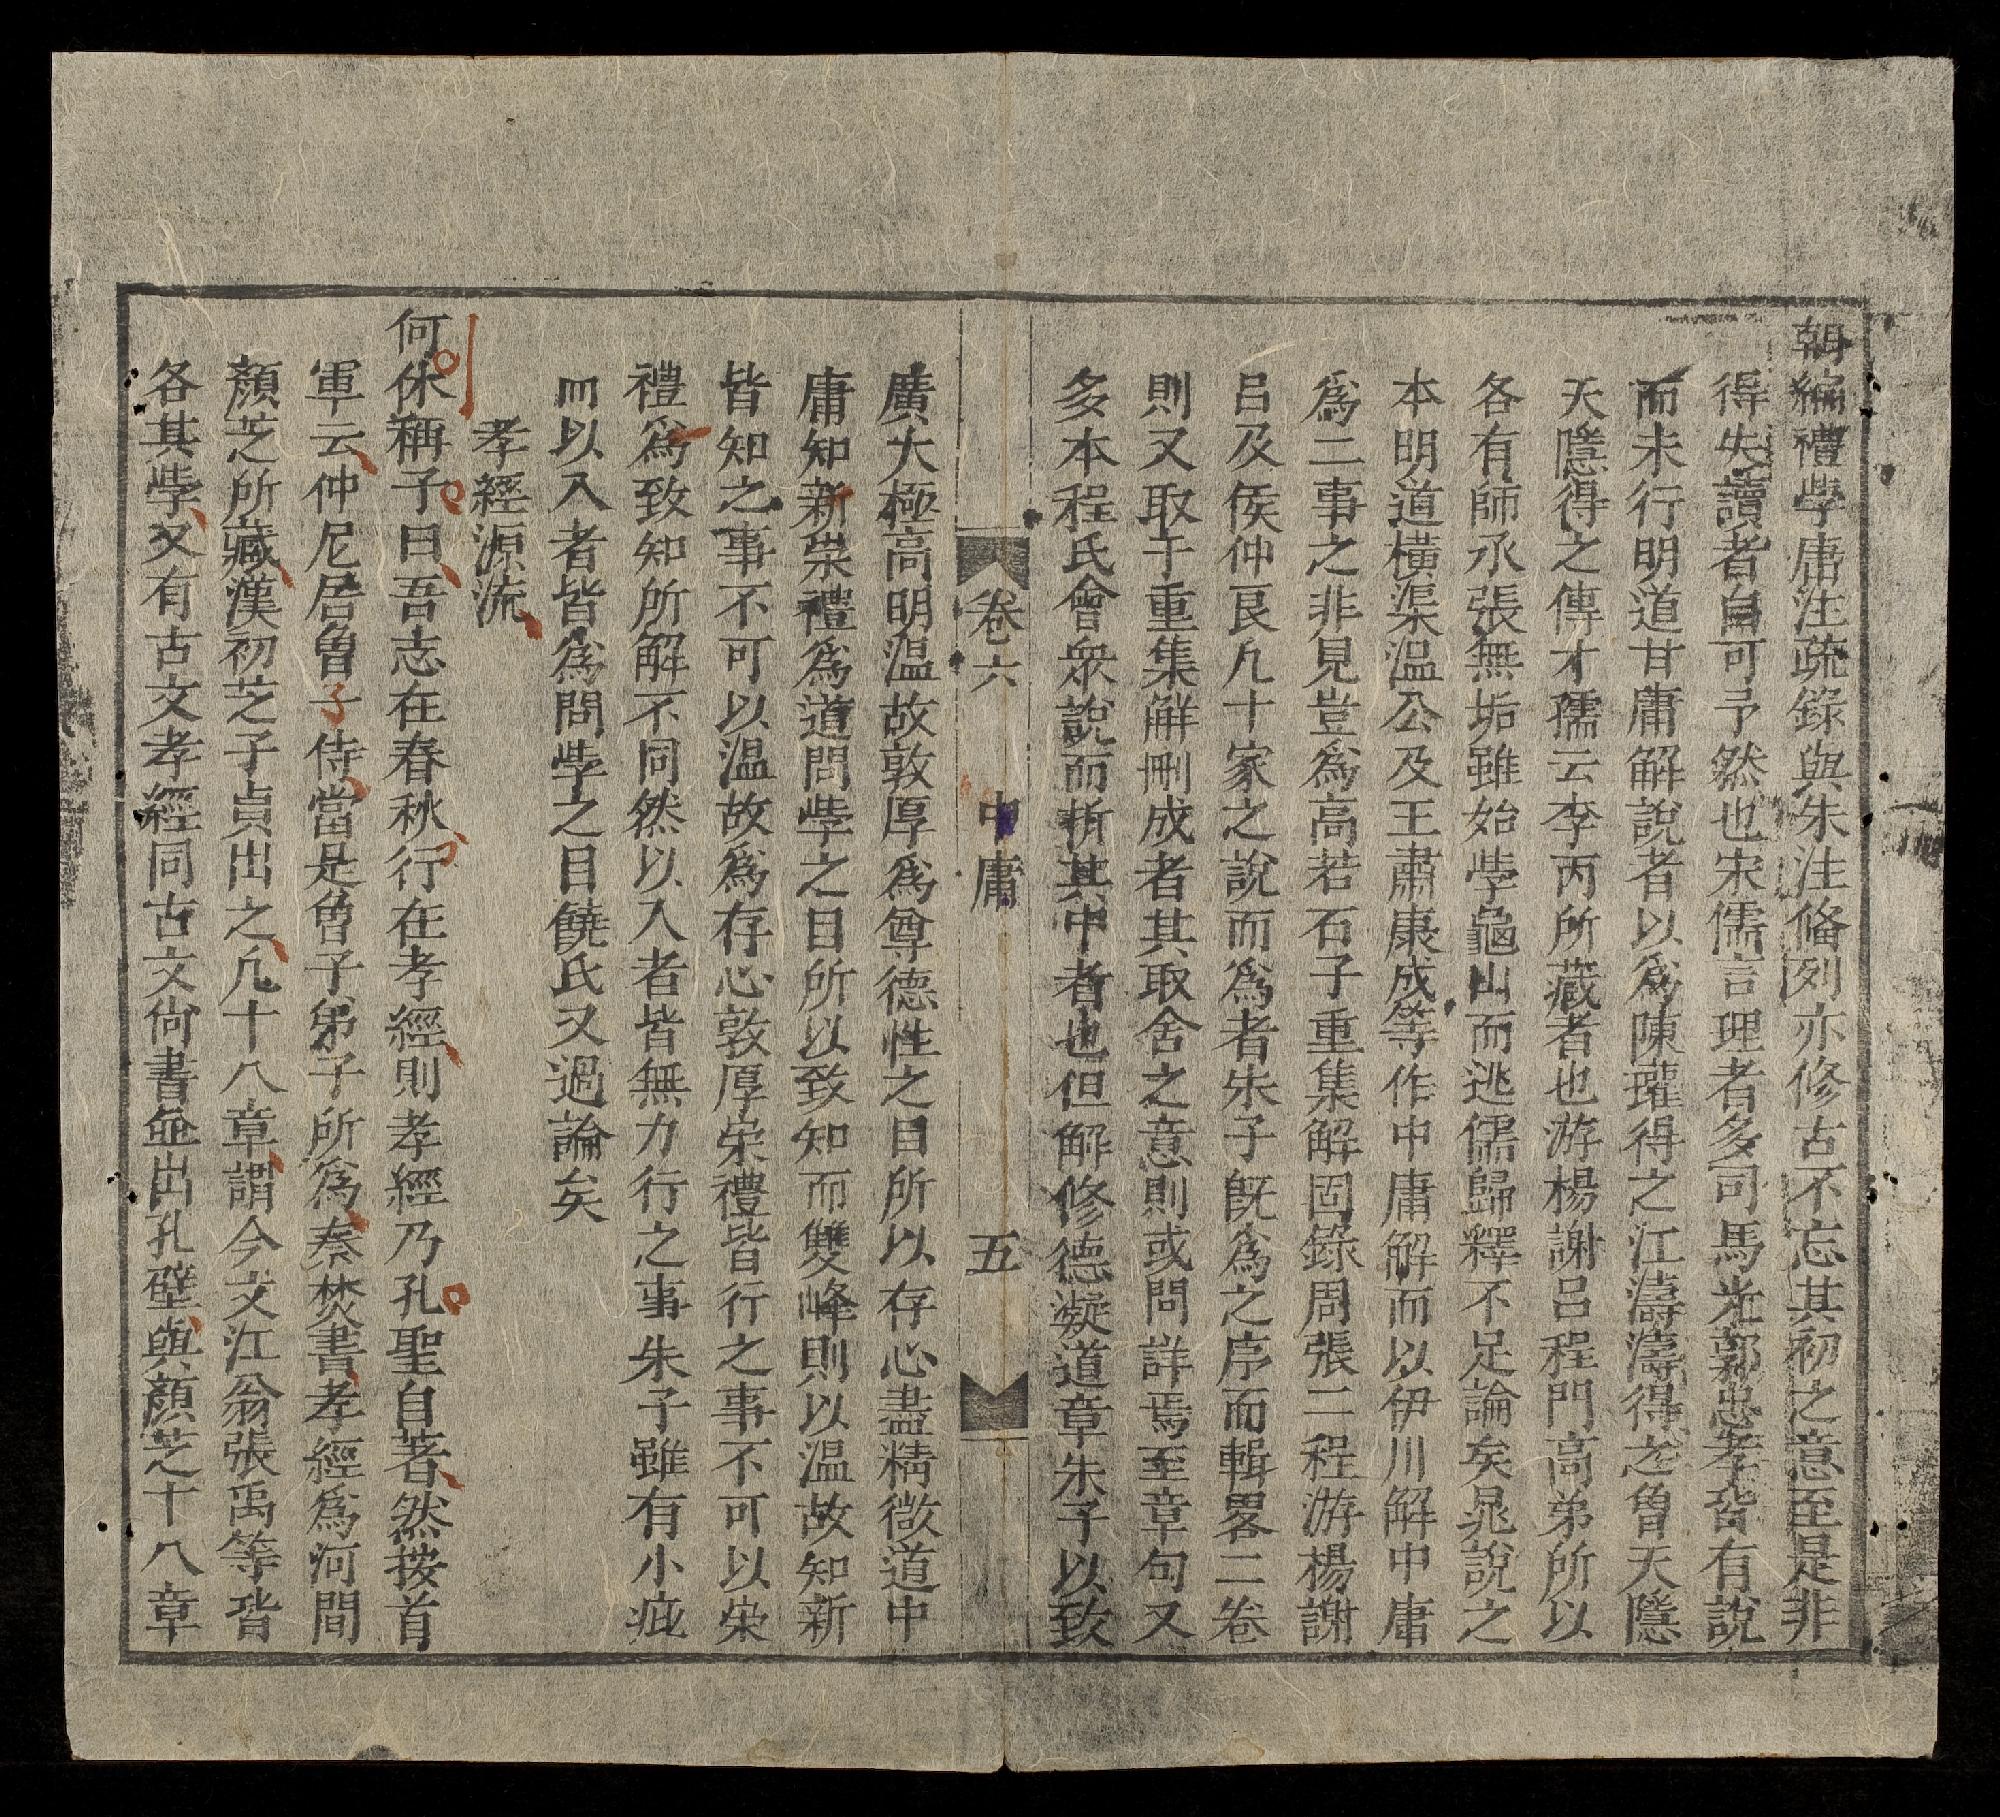 朝編禮學庸注疏錄與朱注偹列亦修古不忘其初之意至是非
得失讀者自可予然也宋儒言理者多司馬光郭忠孝皆有說
而未行明道甘庸解說者以爲陳瓘得之江濤濤得之曾天隱
天隱得之傳才孺云李丙所藏者也游楊謝呂程門高弟所以
各有師承張無垢雖始學龜山而逃儒歸釋不足論矣晁說之
本明道橫渠温公及王肅康成等作中庸解而以伊川解中庸
爲二事之非見豈爲高若石子重集解固錄周張二程游楊謝
呂及侯仲良凡十家之說而爲者朱子旣爲之序而輯畧二卷
則又取于重集解刪成者其取舍之意則或問詳焉至章句又
多本程氏會衆說而折其中者也但解修德凝道章朱子以致
卷六 中庸 五
廣大極高明温故敦厚爲尊德性之目所以存心盡精微道中
庸知新崇禮爲道問學之目所以致知而雙峰則以温故知新
皆知之事不可以温故爲存心敦厚崇禮皆行之事不可以崇
禮爲致知所解不同然以入者皆無力行之事朱子雖有小疵
而以入者皆爲問學之目饒氏又過論矣
孝經源流
何休稱子曰吾志在春秋行在孝經則孝經乃孔聖自著然按首
軍云仲尼居曾子侍當是曾子弟子所爲秦焚書孝經爲河間
顏芝所藏漢初芝子貞出之凡十八章謂今文江翁張禹等皆
各其學又有古文孝經同古文尙書並出孔壁與顏芝十八章